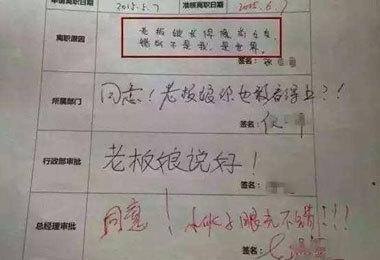 申请离职日期 2015.5.7 准核离职日期 2015.6.7
离职原因
老板娘长得
不是我,是世界。
签名:
所属部门
同志!老板娘你也敢看得上?!
签名:
行政部审批
老板娘说好!
签名:
总经理审批
同意!小伙子眼光不错!!!
签名: